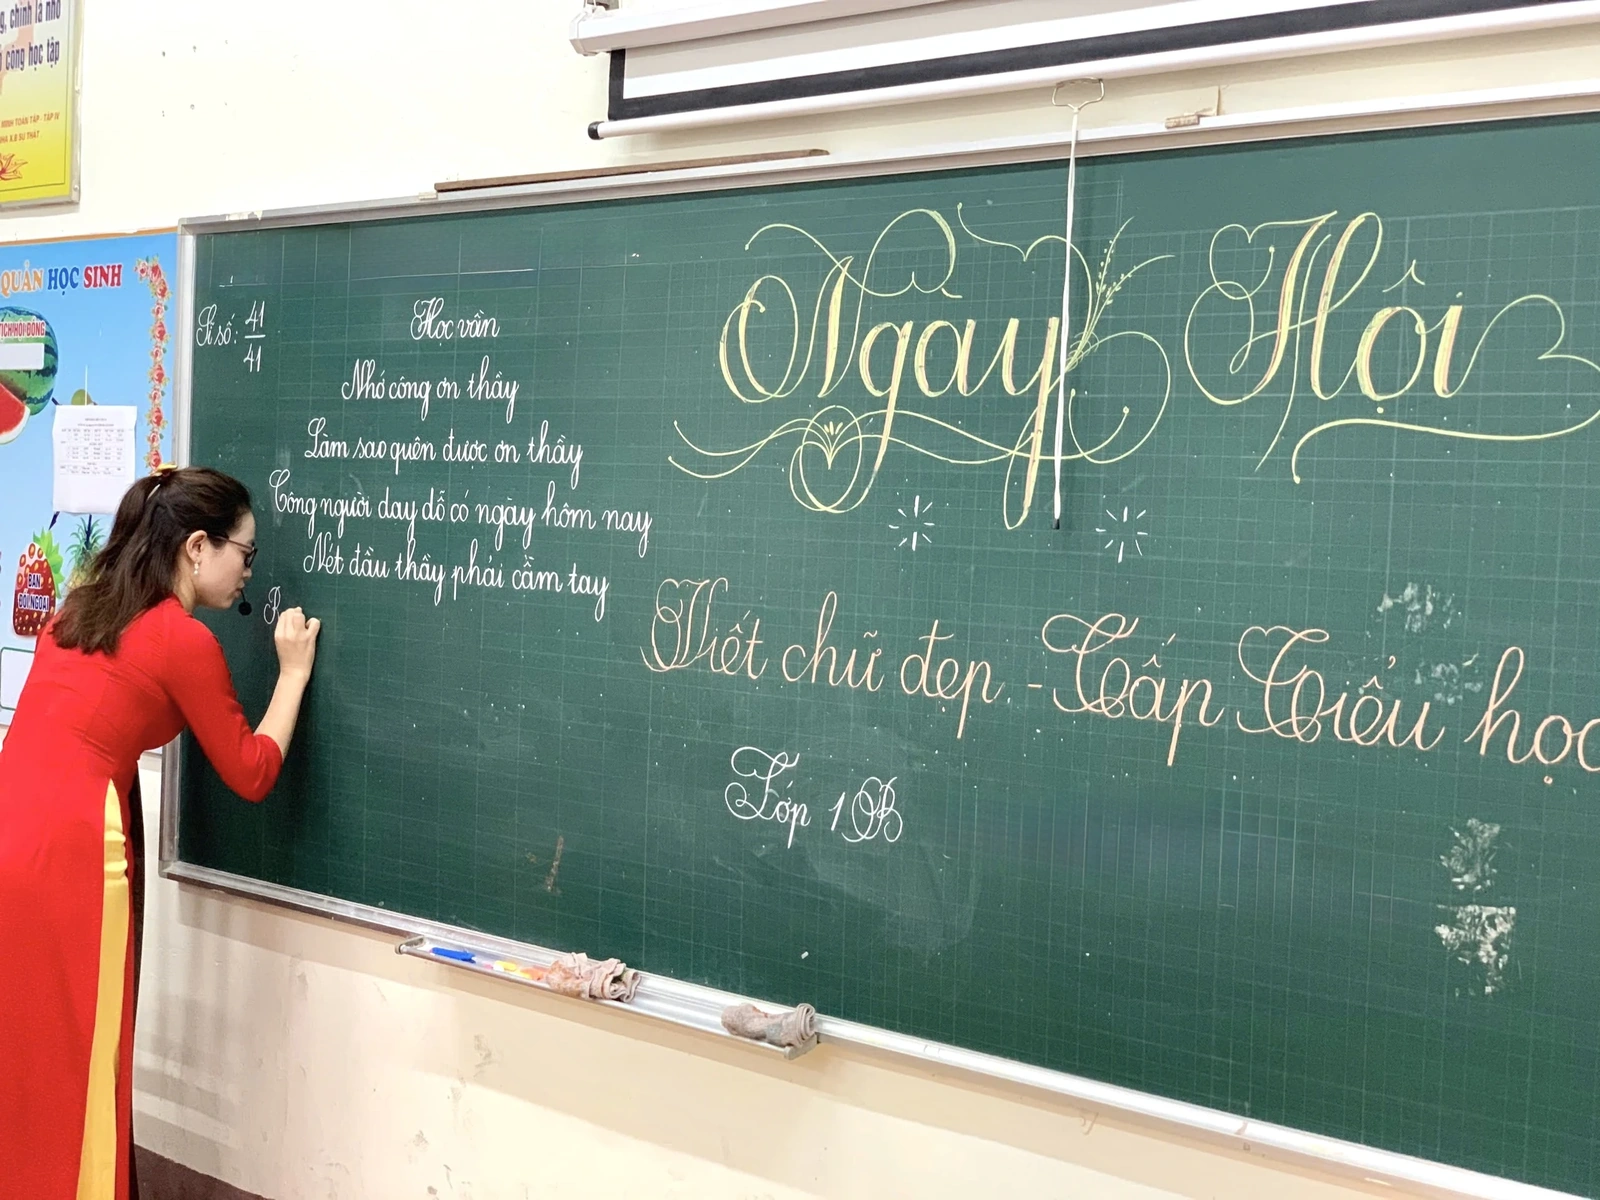 chính là nhờ
công học tập
MINH TOÀN TẬP - TẬP IV
NXB SỰ THẬT
QUẢN HỌC SINH
TỊCH HỘI ĐỒNG
BAN
ĐỐI NGOẠI
Sĩ số: 41/41
Học vần
Nhớ công ơn thầy
Làm sao quên được ơn thầy
Công người day dỗ có ngày hôm nay
Nét đầu thầy phải cầm tay
R
Ngày Hội
Viết chữ đẹp - Cấp Tiểu học
Lớp 1B